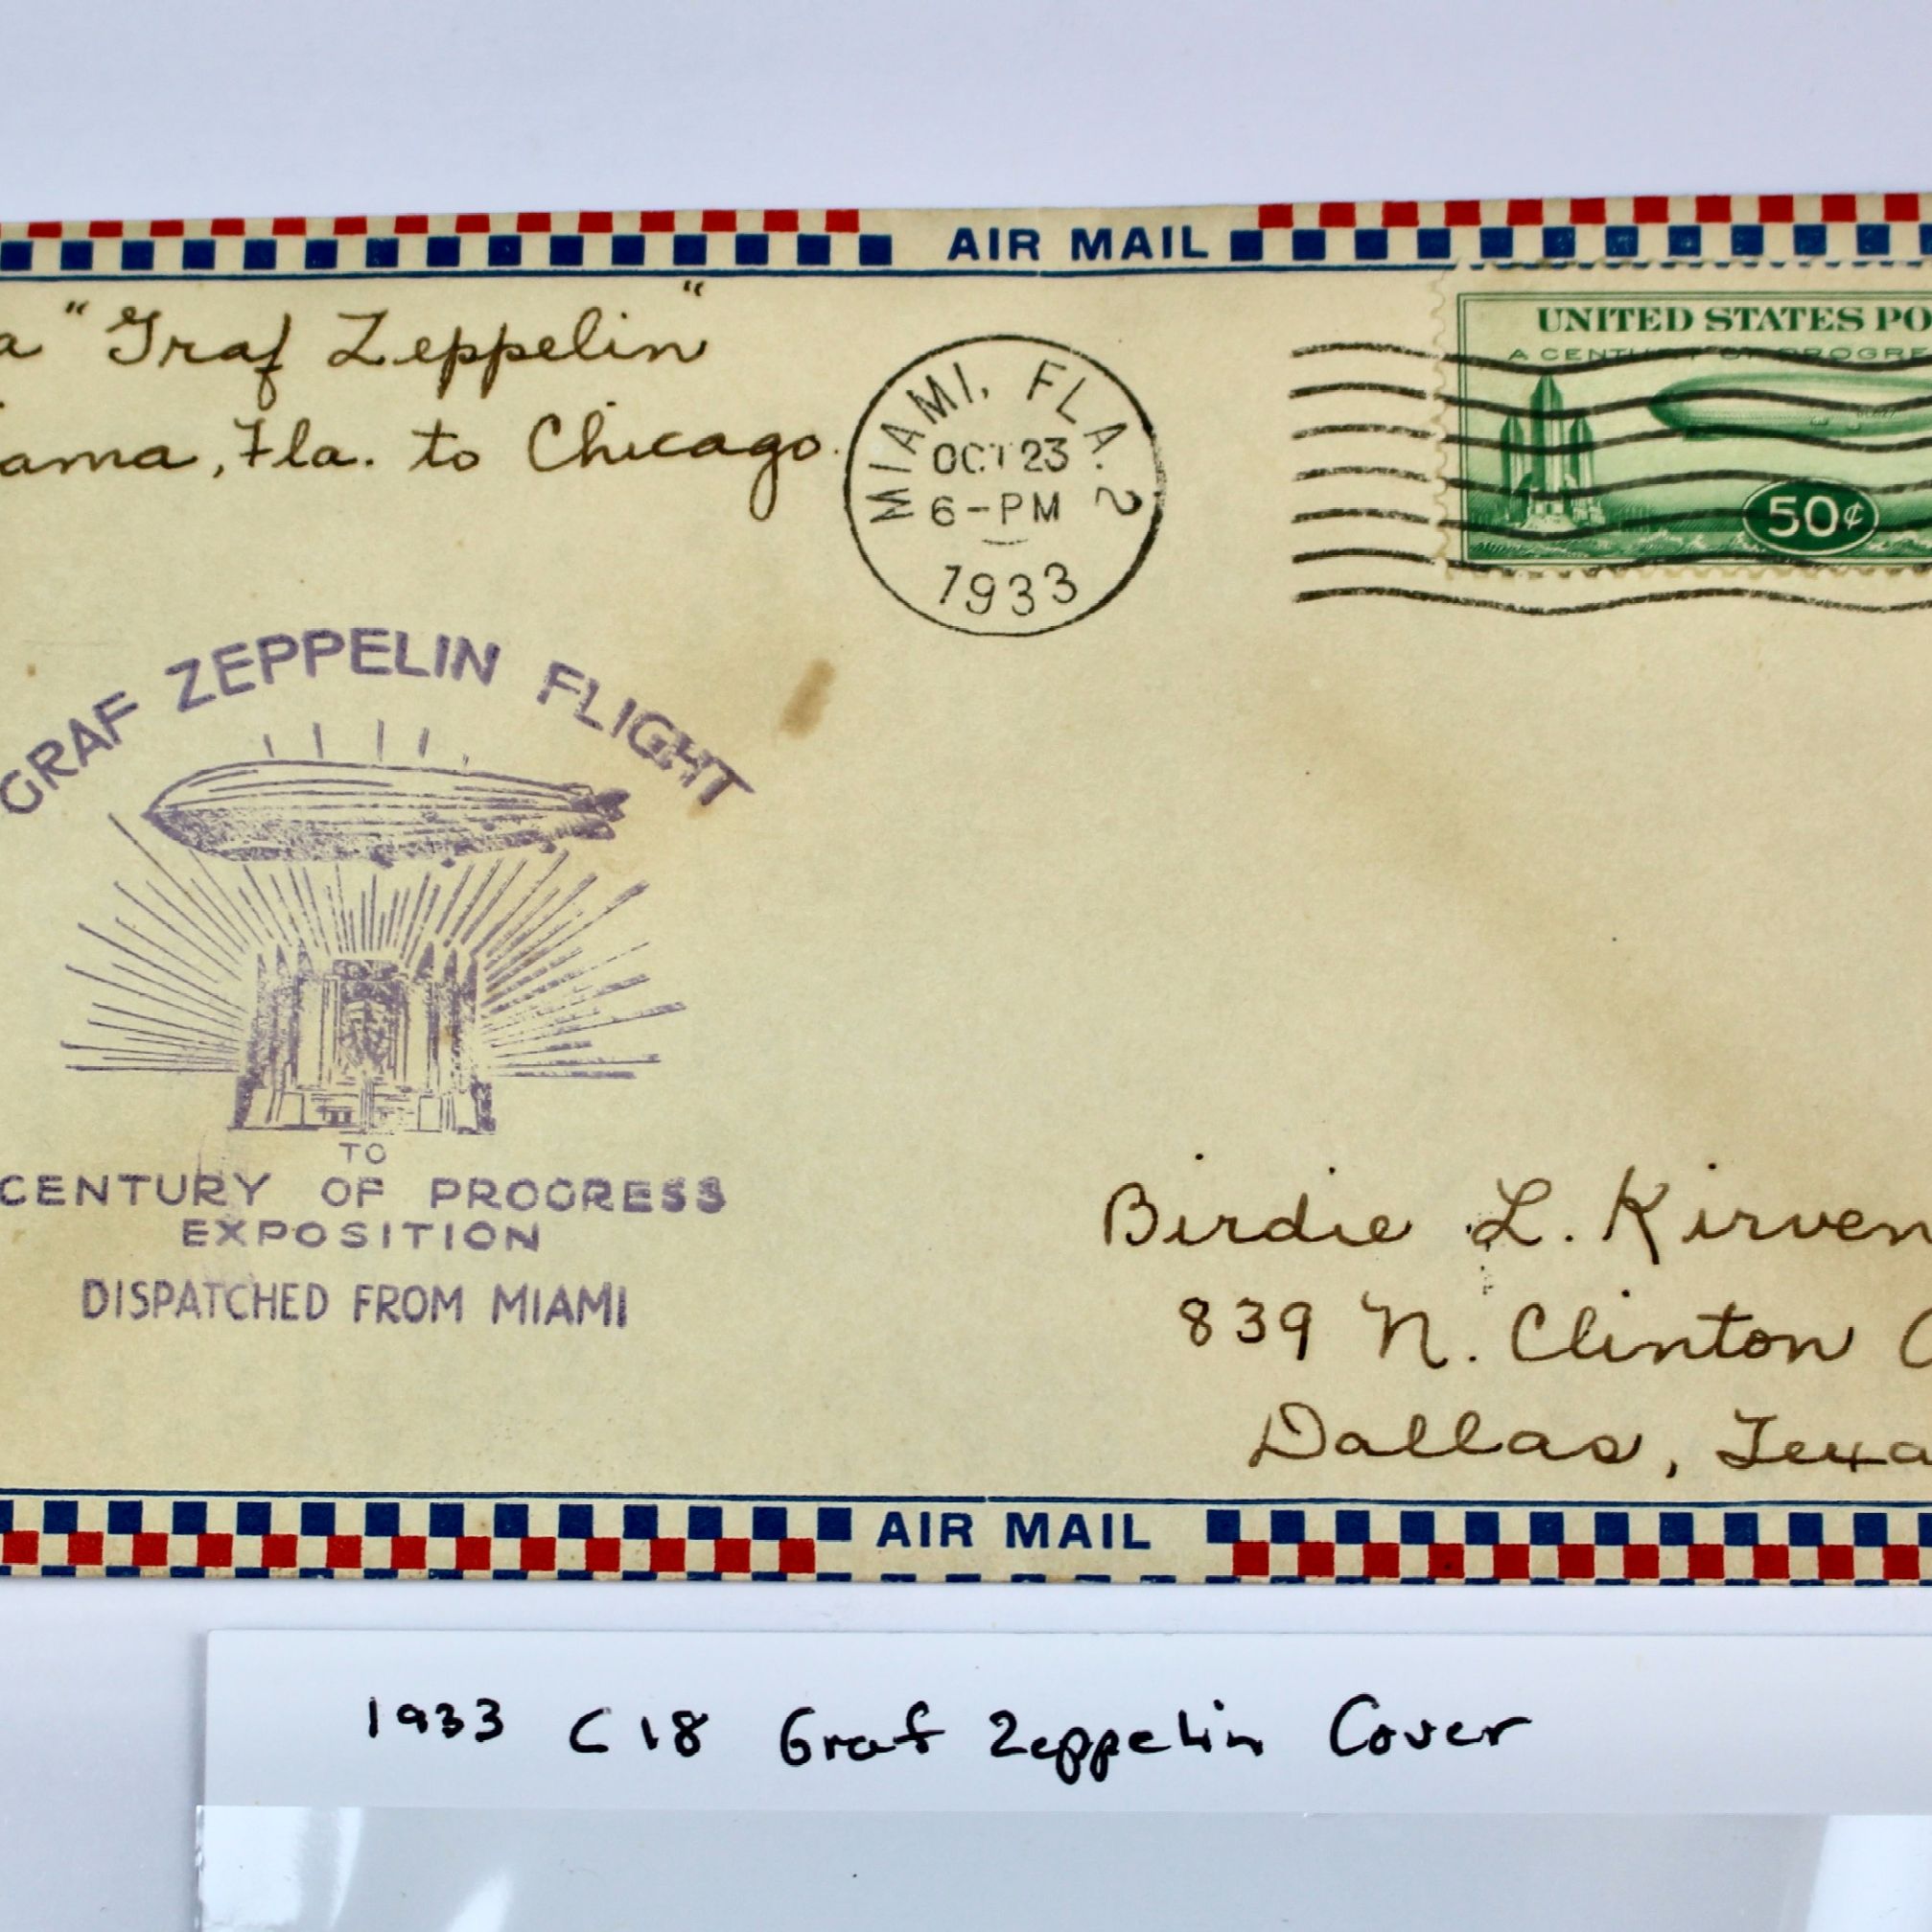 AIR MAIL
a "Graf Zeppelin"
ama, Fla. to Chicago.
MIAMI, FLA. 2
OCT 23
6-PM
1933
UNITED STATES PO
A CENTURY OF PROGRE
50¢
GRAF ZEPPELIN FLIGHT
TO
CENTURY OF PROGRESS
EXPOSITION
DISPATCHED FROM MIAMI
Birdie L. Kirven
839 N. Clinton
Dallas, Texa
AIR MAIL
1933 C18 Graf Zeppelin Cover